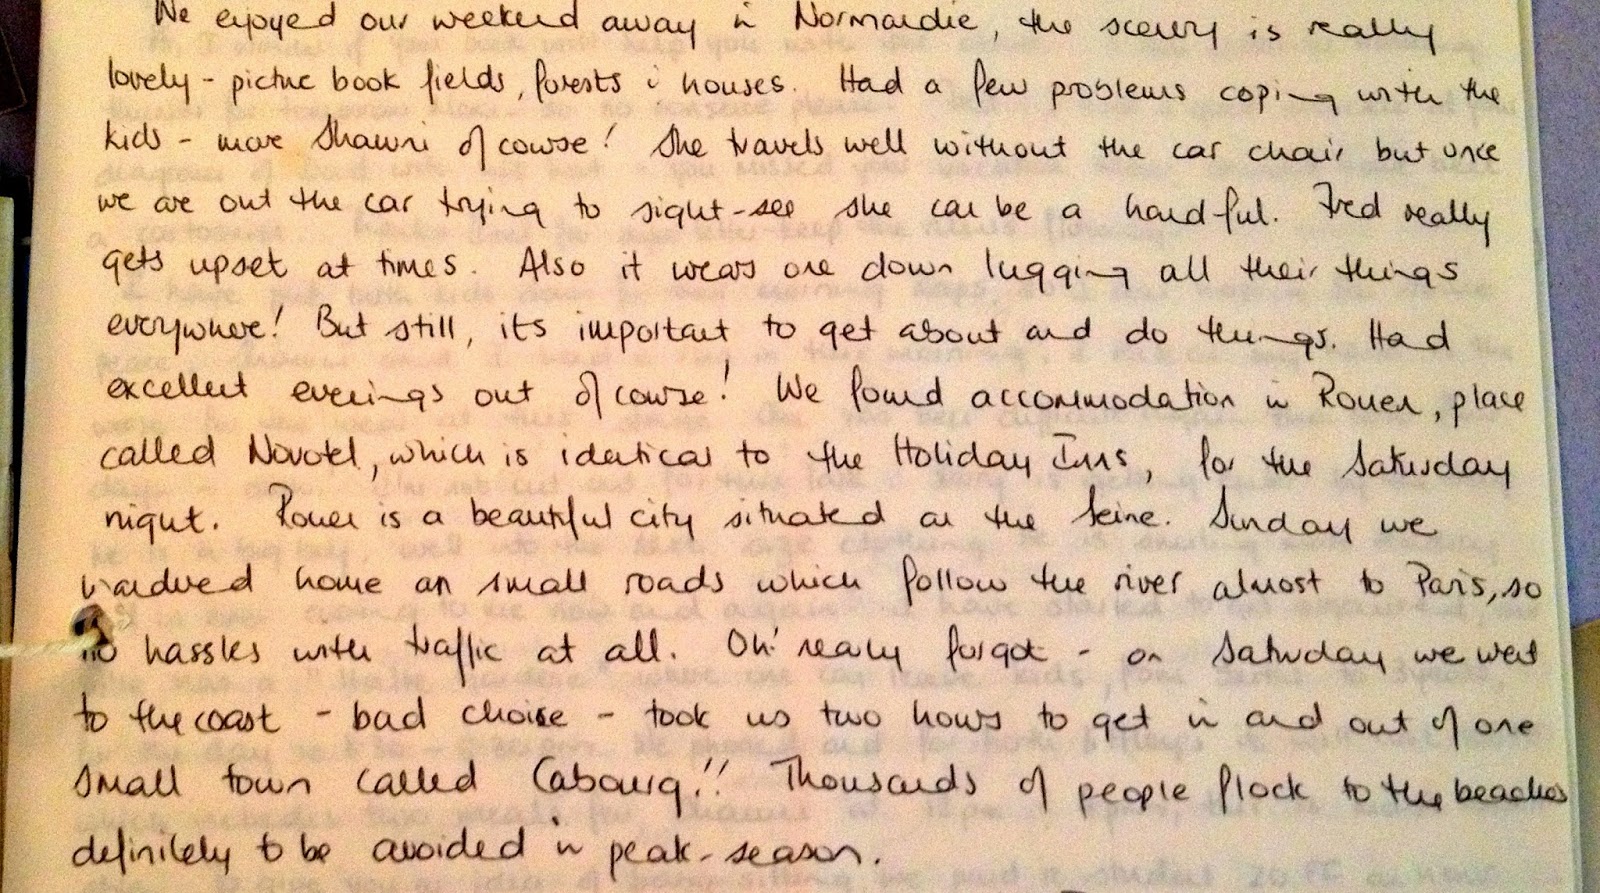 We enjoyed our weekend away in Normandie, the scenery is really
lovely - picture book fields, forests & houses. Had a few problems coping with the
kids - more Shawni of course! She travels well without the car chair but once
we are out the car trying to sight-see she can be a handful. Fred really
gets upset at times. Also it wears one down lugging all their things
everywhere! But still, its important to get about and do things. Had
excellent evenings out of course! We found accommodation in Rouen, place
called Novotel, which is identical to the Holiday Inns, for the Saturday
night. Rouen is a beautiful city situated on the Seine. Sunday we
wandered home on small roads which follow the river almost to Paris, so
no hassles with traffic at all. Oh! really forgot - on Saturday we went
to the coast - bad choise - took us two hours to get in and out of one
small town called Cabourg!! Thousands of people flock to the beaches
definitely to be avoided in peak-season.